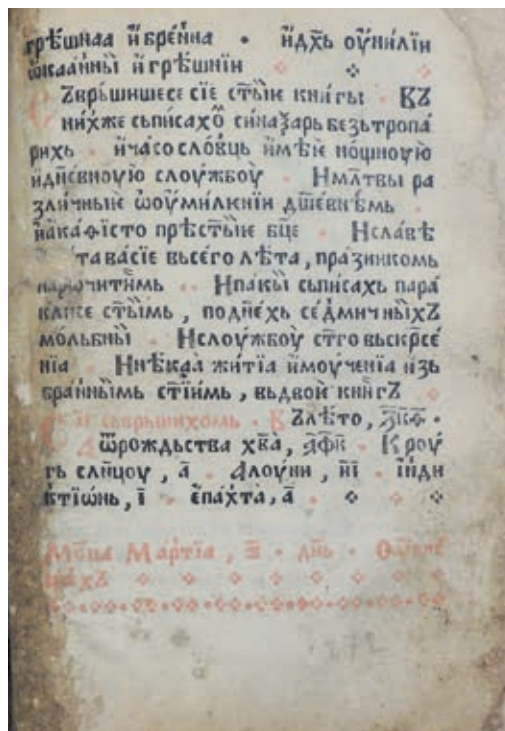 грѣшнаа и҆ бре́нна • и҆ дх҃ь оу҆ни́лїи
ѡ҆каа́нны и҆ грѣ́шнїи
Съврь́шишесе сїе ст҃ы́е кни́гы • Въ
ни́хже сьписахѡ҆ сѷнаѯа́рь безь тропа
рихь • и҆ часосло́вць и҆мѣ́е но́щноую
и҆ дне́вноую слоу́жбоу • И мл҃твы ра
зли́чные ѡ҆ оу҆миле́нїи дш҃е́внѣмь
и҆ а҆ка́ѳїсто прѣст҃ы́е бц҃е • И сла́вѣ
та ва́сїе вьсе́го лѣ́та, пра́зникомь
нарочи́тимь • И па́кы сьписахь пара
кли́се ст҃ы́мь, по дне́хь се́дмичныхъ
мо́льбны • И слоу́жбоу ст҃го вьскр҃се́
нїа • И нѣ́каа жи́тїа и҆ моуче́нїа и҆зь
бра́ннымь ст҃ы́имь, вь двои́ кни́гъ
сьврьшихомь • Въ лѣ́то, ҂зк҃ѳ •
ѿ рождьства хв҃а, ҂аф҃к • Кроу́
гь сл҃нцоу, а҃ • А лоу́ни, и҃і • і҆́нди
ктїѡ́нь, і҃ • е҆па́хта, а҃ •
Мс҃ца Ма́ртїа, • дн҃ь •
272